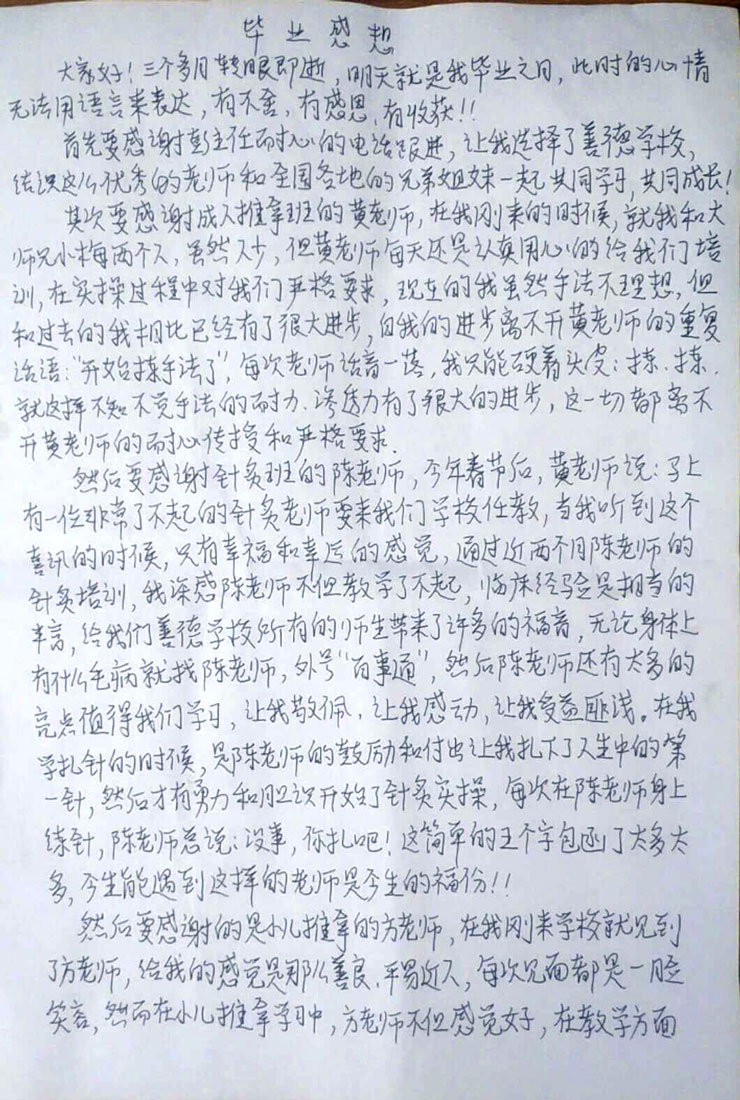 毕业感想
大家好！三个多月转眼即逝，明天就是我毕业之日，此时的心情
无法用语言来表达，有不舍，有感恩，有收获！！
首先要感谢彭主任耐心的电话跟进，让我选择了善德学校，
结识这么优秀的老师和全国各地的兄弟姐妹一起共同学习，共同成长！
其次要感谢成人推拿班的黄老师，在我刚来的时候，就我和大
师兄小梅两个人，虽然人少，但黄老师每天还是认真用心的给我们培
训，在实操过程中对我们严格要求，现在的我虽然手法不理想，但
和过去的我相比已经有了很大进步，自我的进步离不开黄老师的重复
话语：“开始揉手法了”，每次老师话音一落，我只能硬着头皮：揉、揉、
就这样不知不觉手法的耐力、渗透力有了很大的进步，这一切都离不
开黄老师的耐心传授和严格要求。
然后要感谢针灸班的陈老师，今年春节后，黄老师说：马上
有一位非常了不起的针灸老师要来我们学校任教，当我听到这个
喜讯的时候，只有幸福和幸运的感觉，通过近两个月陈老师的
针灸培训，我深感陈老师不但教学了不起，临床经验是相当的
丰富，给我们善德学校所有的师生带来了许多的福音，无论身体上
有什么毛病就找陈老师，外号“百事通”，然后陈老师还有太多的
亮点值得我们学习，让我敬佩，让我感动，让我受益匪浅。在我
学扎针的时候，是陈老师的鼓励和付出让我扎下了人生中的第
一针，然后才有勇力和胆识开始了针灸实操，每次在陈老师身上
练针，陈老师总说：没事，你扎吧！这简单的五个字包函了太多太
多，今生能遇到这样的老师是今生的福份！！
然后要感谢的是小儿推拿的方老师，在我刚来学校就见到
了方老师，给我的感觉是那么善良、平易近人，每次见面都是一脸
笑容，然而在小儿推拿学习中，方老师不但感觉好，在教学方面